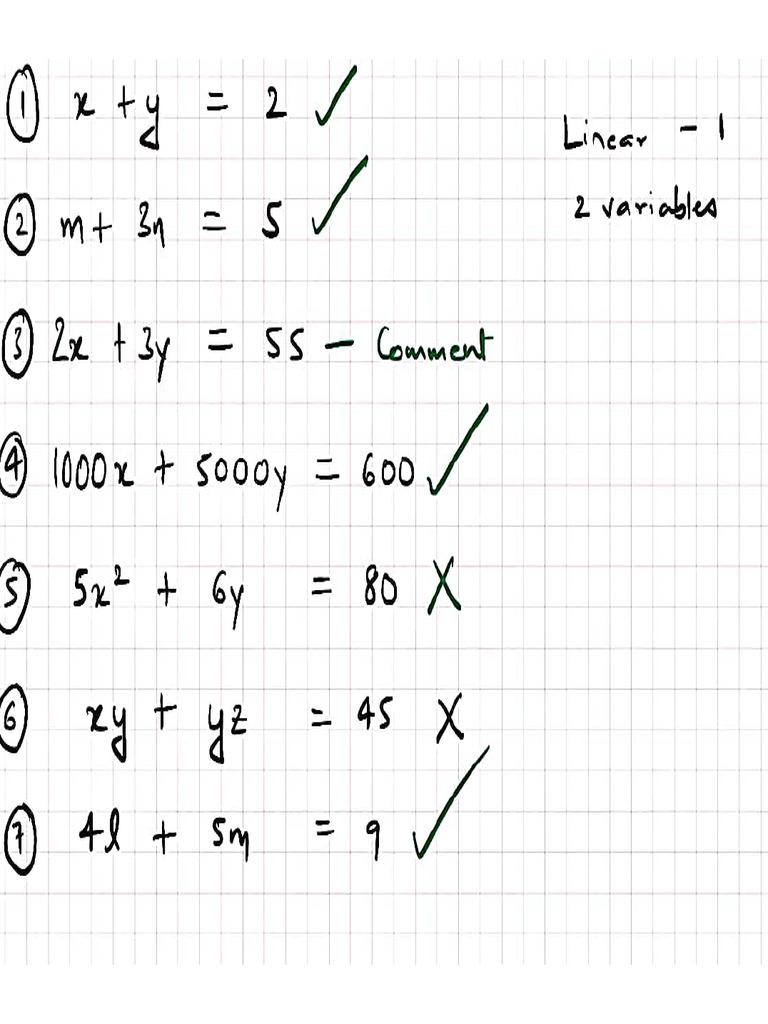 ① x + y = 2 ✓
Linear - 1
② m + 3n = 5 ✓
2 variables
③ 2x + 3y = 55 - Comment
④ 1000x + 5000y = 600 ✓
⑤ 5x² + 6y = 80 X
⑥ xy + yz = 45 X
⑦ 4l + 5m = 9 ✓